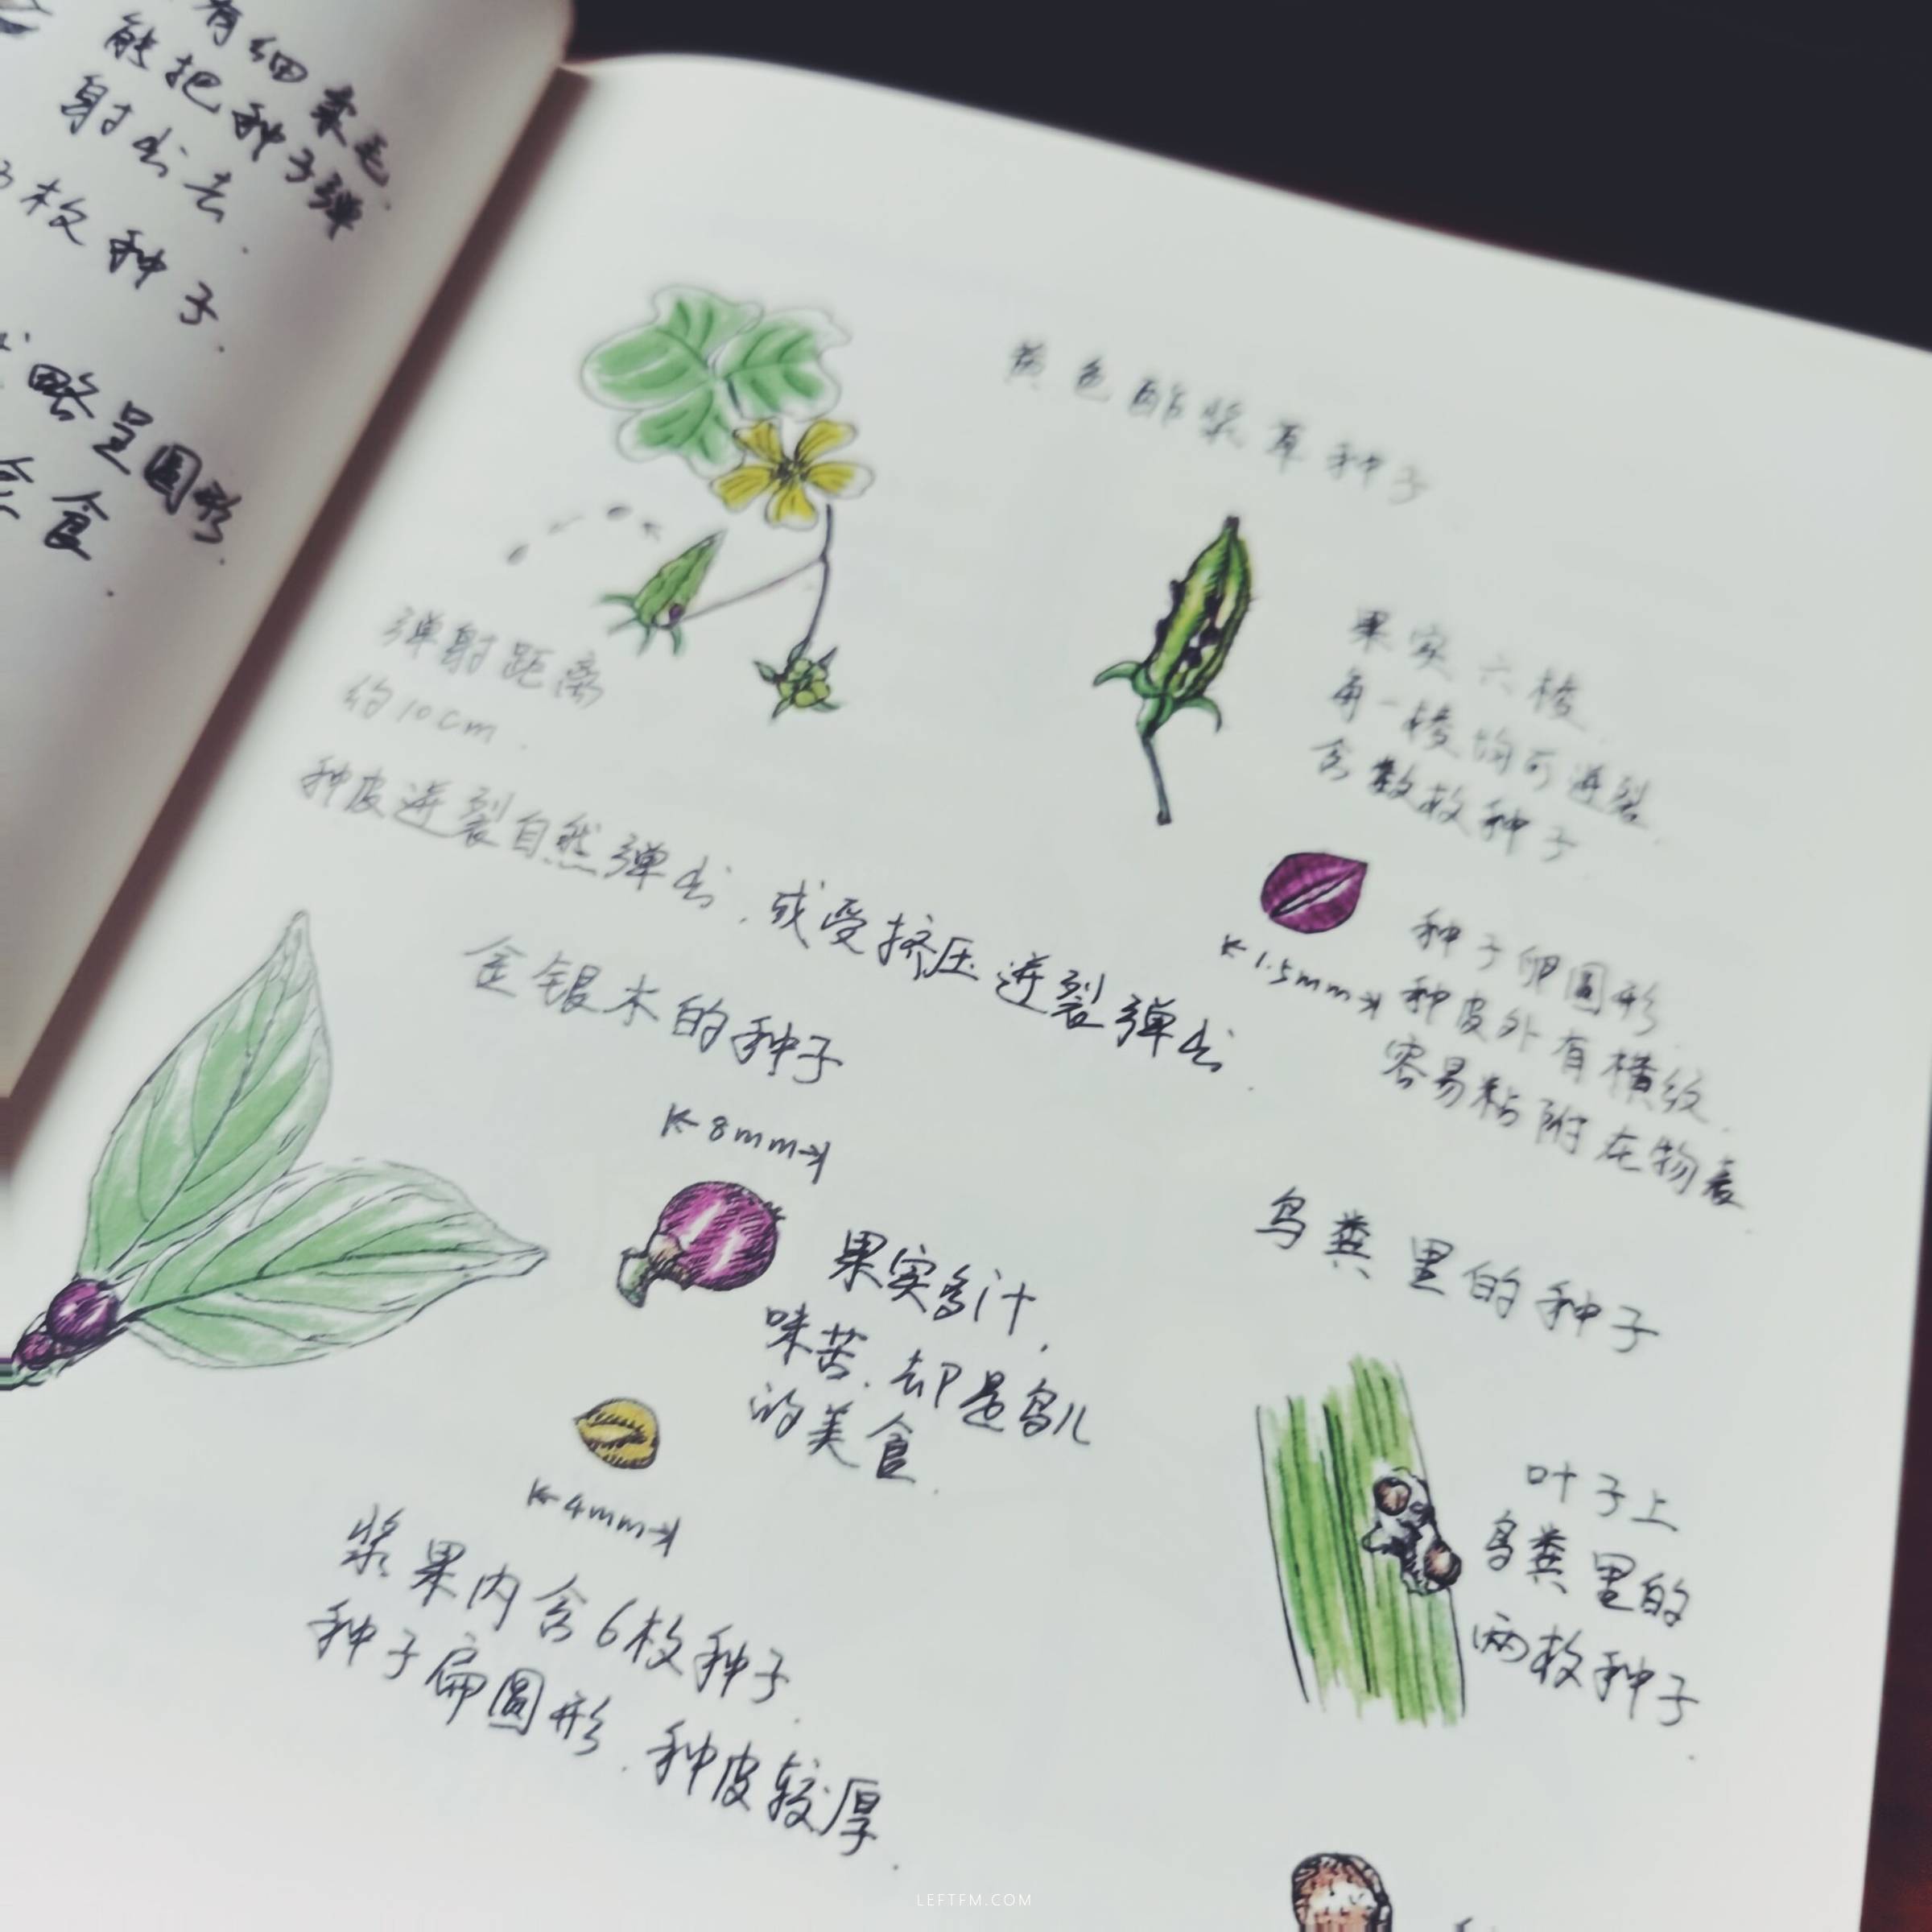 有细柔毛.
能把种子弹
射出去.
枚种子.
略呈圆形.
美食.
黄色酢浆草种子
弹射距离
约10cm.
果实六棱.
每一棱均可迸裂.
含数枚种子
种皮迸裂自然弹出.或受挤压迸裂弹出.
1.5mm
种子卵圆形
种皮外有横纹.
容易粘附在物表.
金银木的种子
8mm
果实多汁,
味苦.却是鸟儿
的美食.
4mm
浆果内含6枚种子.
种子扁圆形.种皮较厚.
鸟粪里的种子
叶子上
鸟粪里的
两枚种子.
LEFTFM.COM